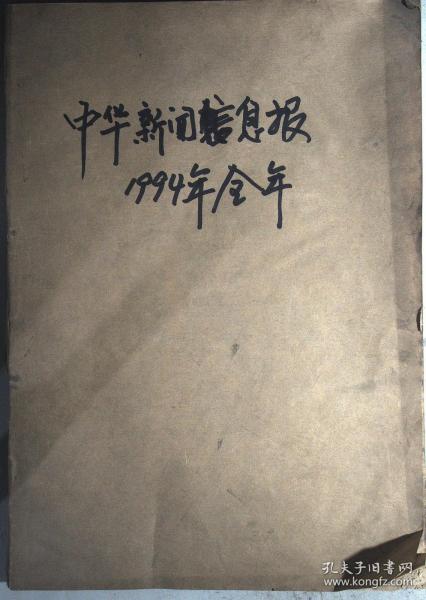 中华新闻信息报
1994年全年
孔夫子旧书网
www.kongfz.com